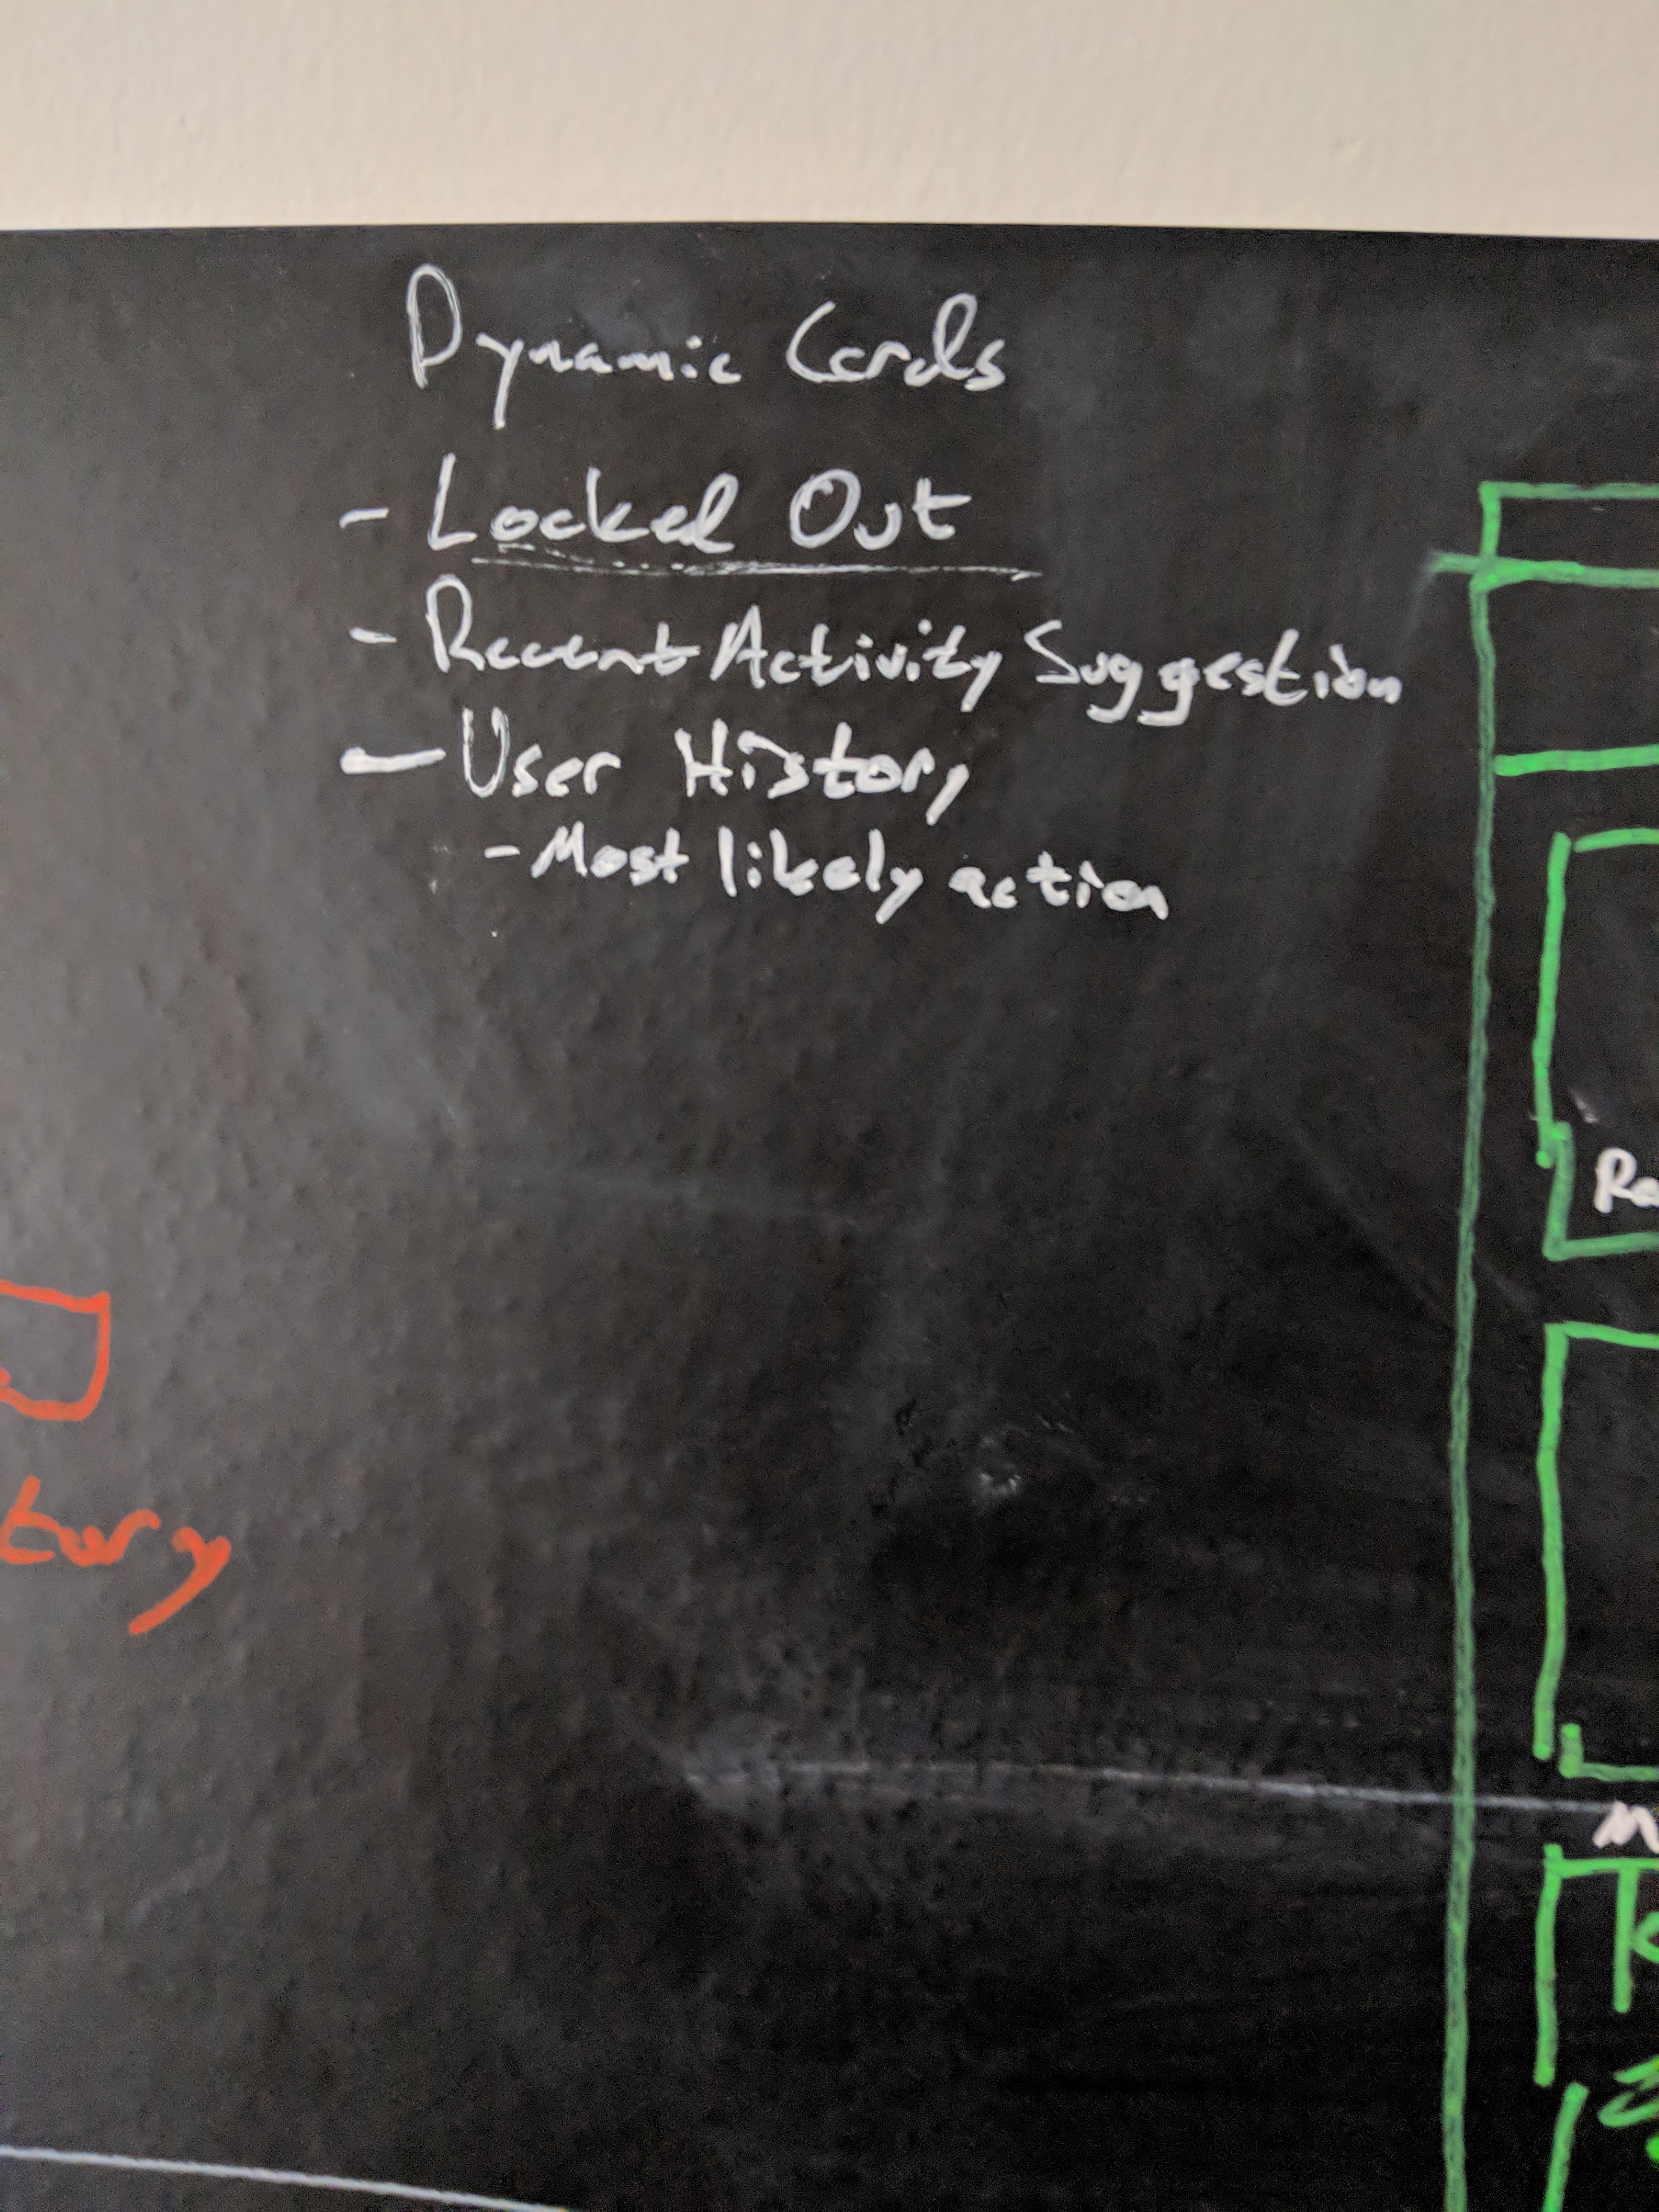 Dynamic Cards
- Locked Out
- Recent Activity Suggestion
- User History
- Most likely action
tory